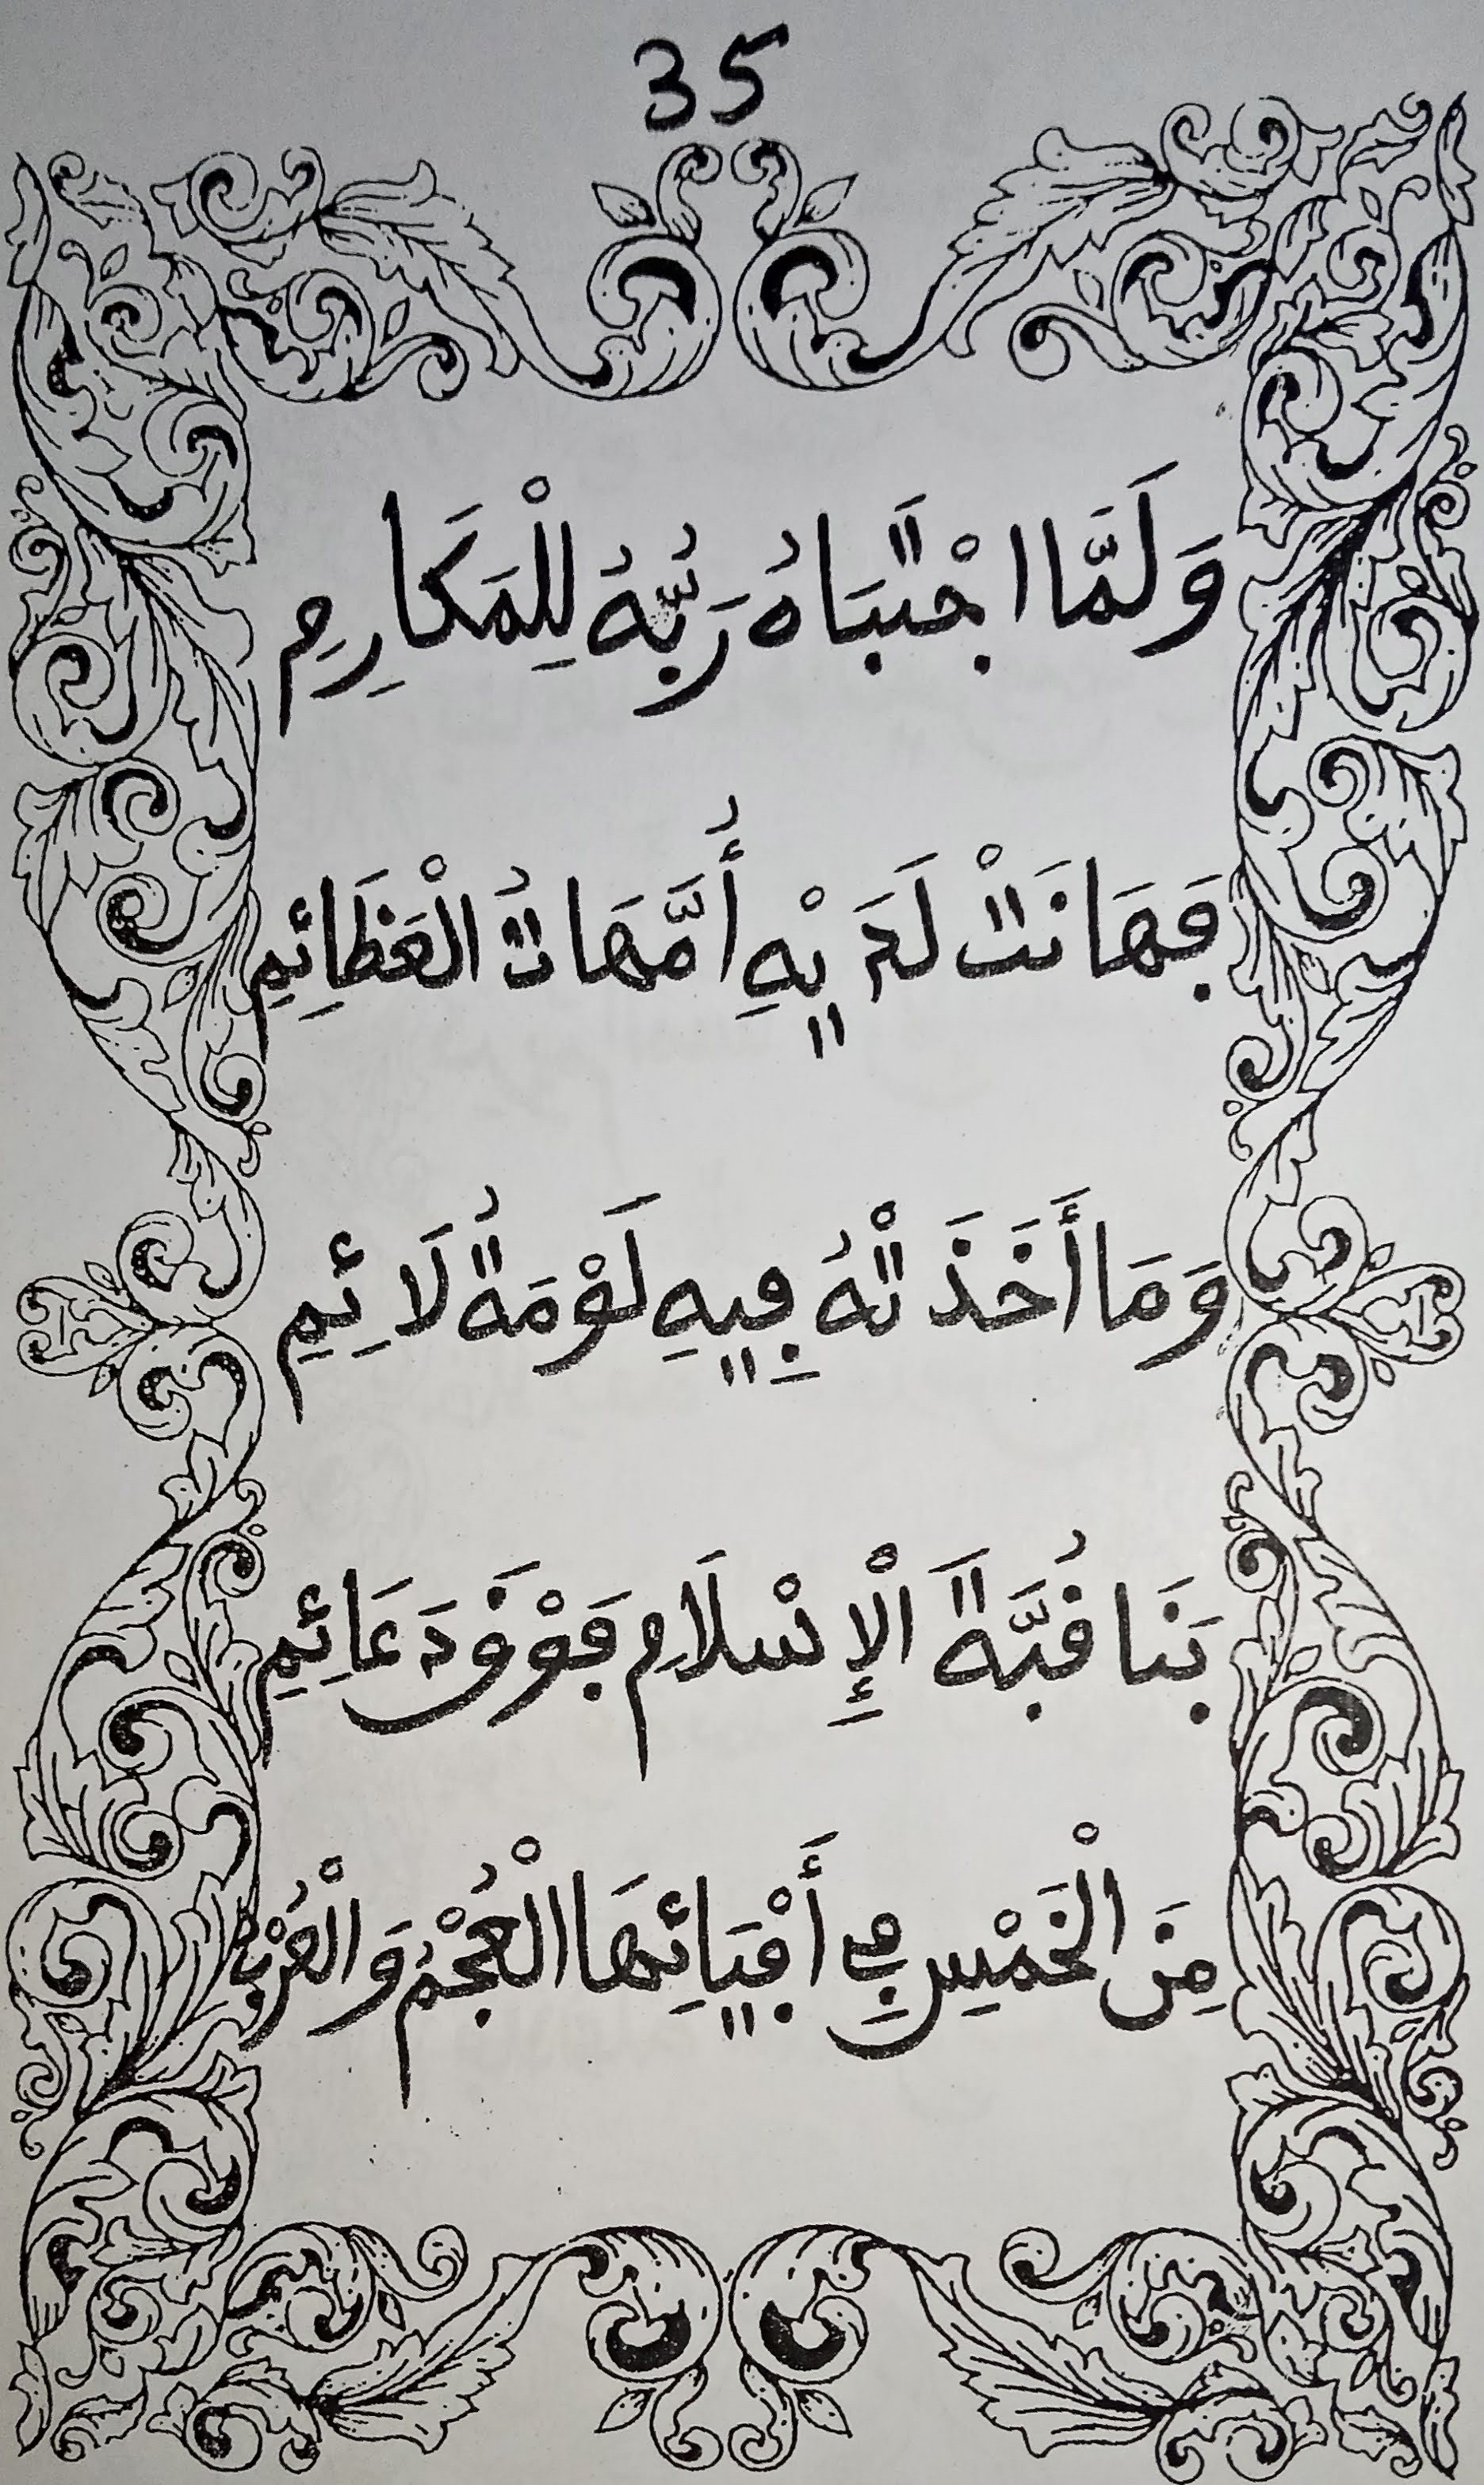 35
وَلَمَّا اجْتَبَاهُ رَبُّهُ لِلْمَكَارِمِ
فَهَانَتْ لَدَيْهِ أُمَّهَاتُ الْعَظَائِمِ
وَمَا أَخَذَتْهُ فِيهِ لَوْمَةُ لَائِمِ
بَنَا قُبَّةَ الْإِسْلَامِ فَوْقَ دَعَائِمِ
مِنَ الْخَمْسِ فِي أَفْيَائِهَا الْعُجْمُ وَالْعُرْبُ